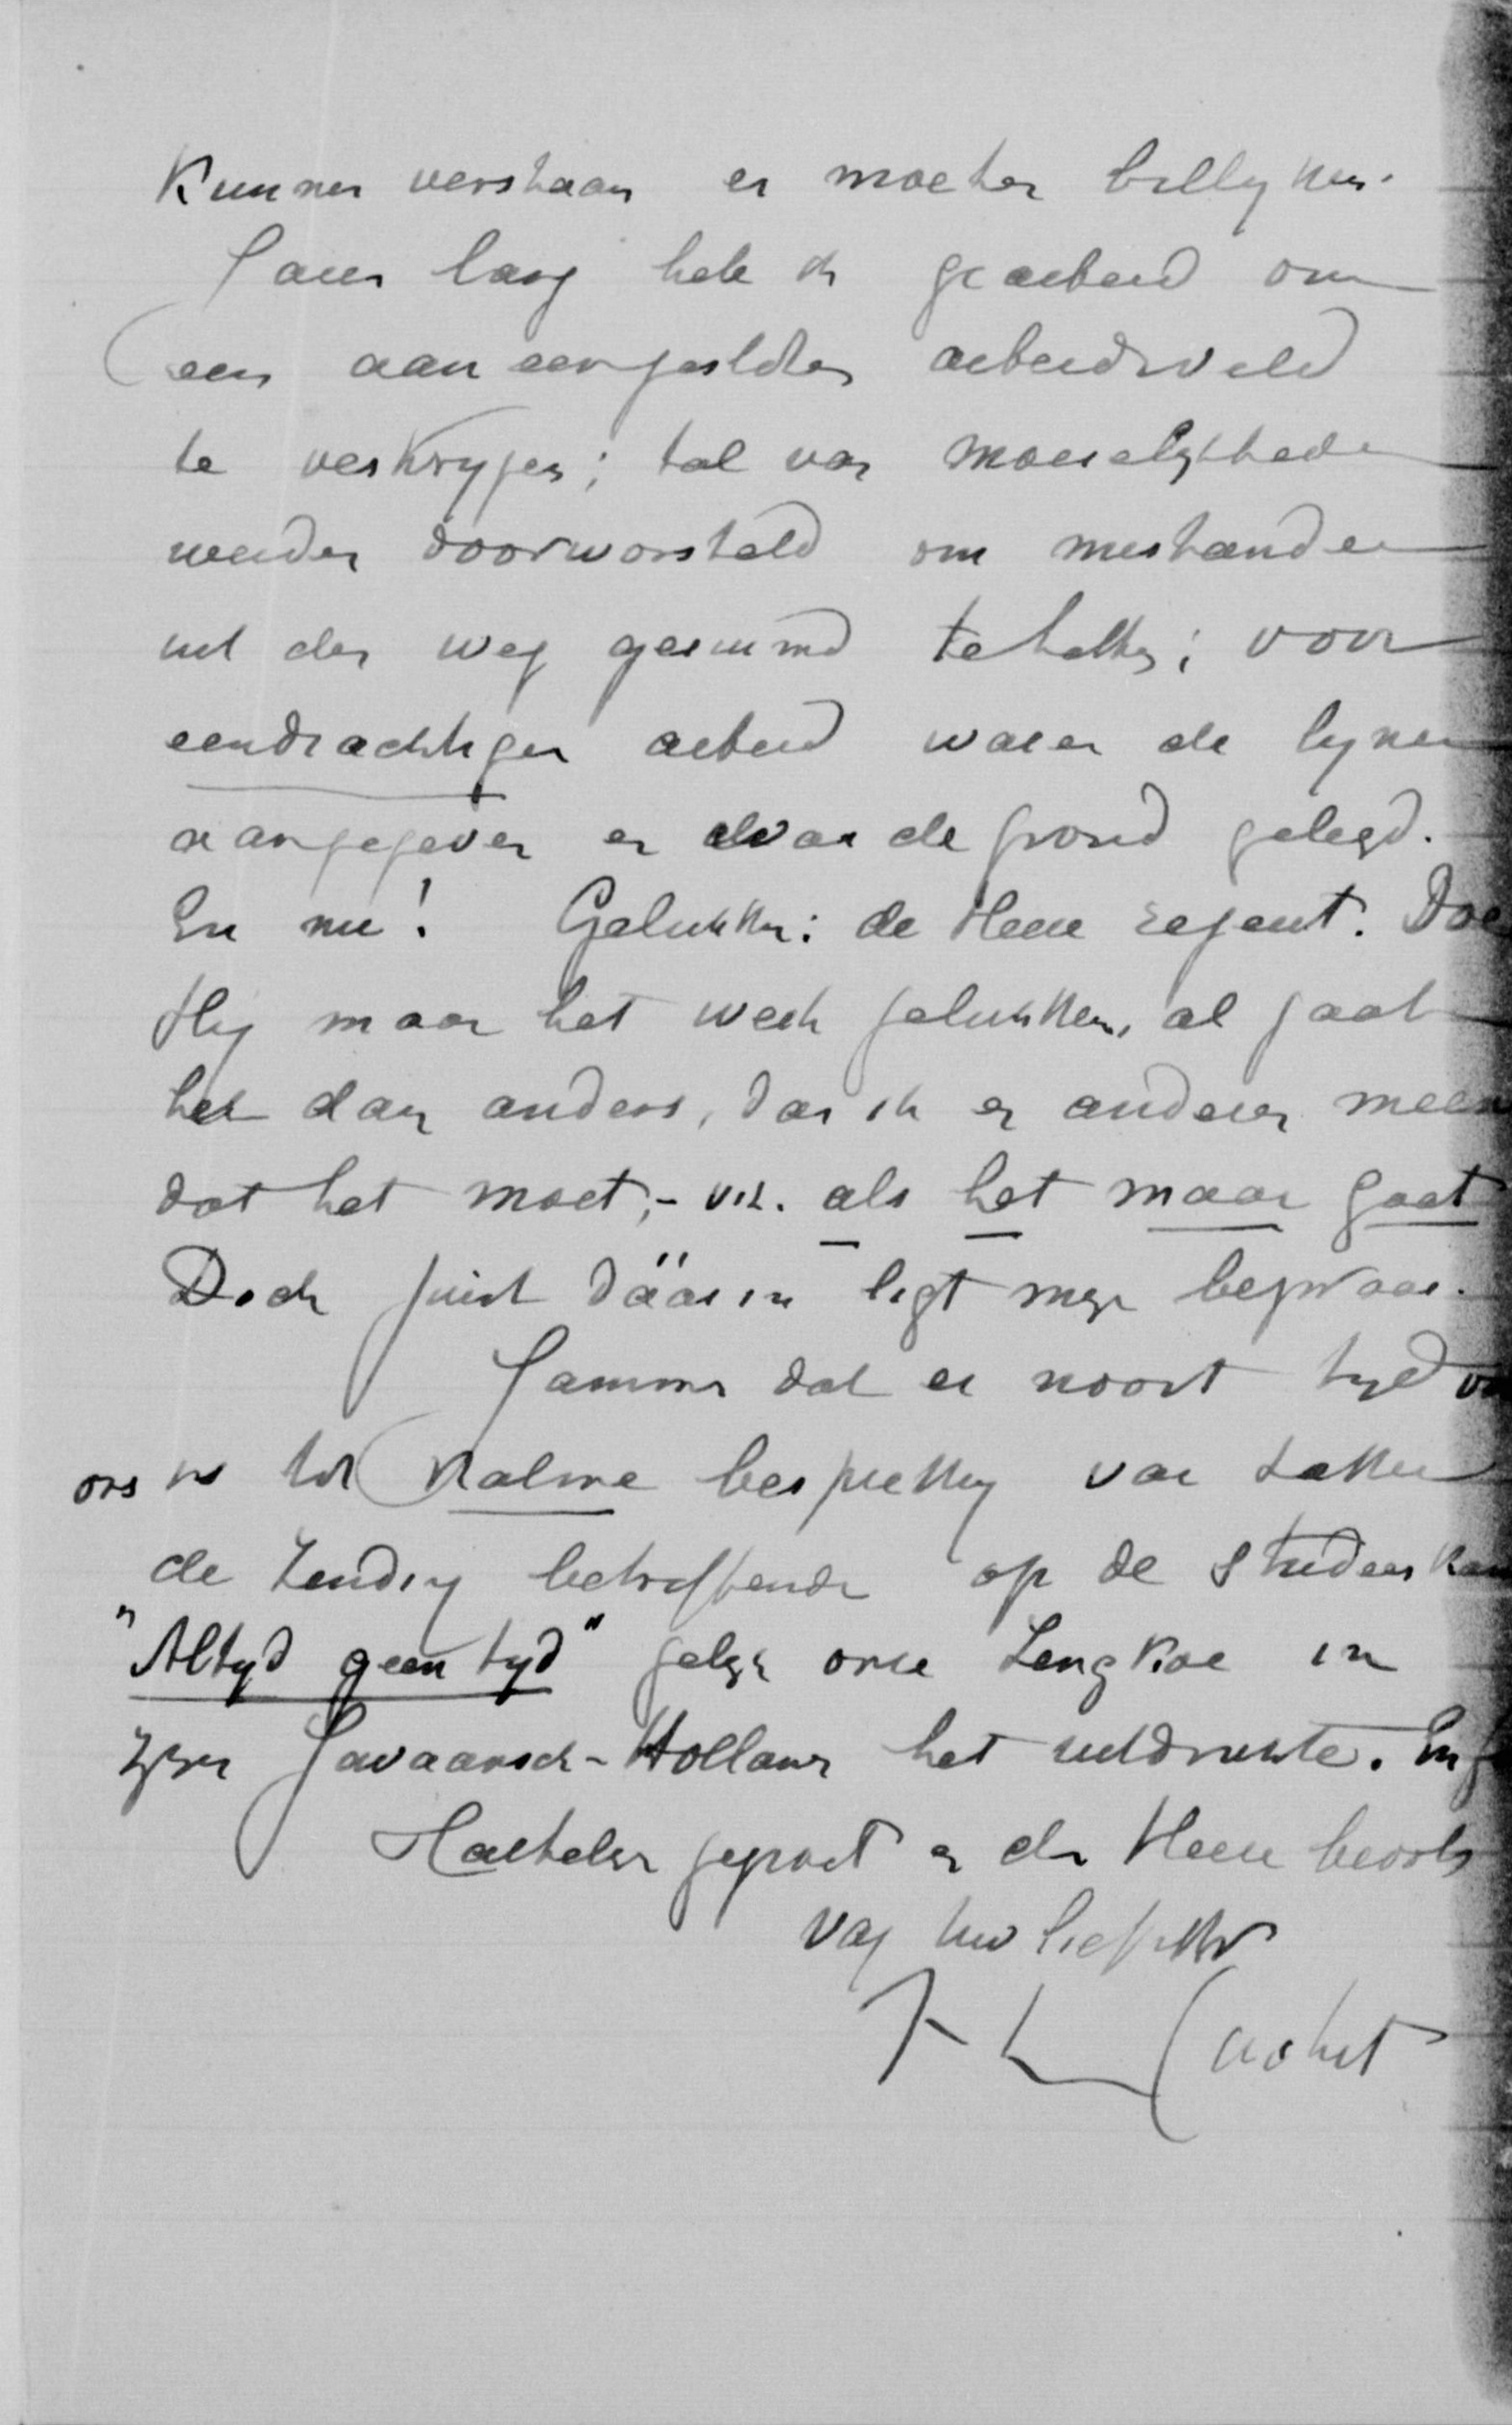 kunnen verstaan en moeten billyken.
Jaren lang heb ik gearbeid om
een aaneengesloten arbeidsveld
te verkrygen; tal van moeielykheden
werden doorworsteld om misstanden
uit den weg geruimd te hebben; voor
eendrachtigen arbeid waren de lynen
aangegeven en was de grond gelegd.
En nu! Gelukkig: de Heere regeert. Doe
Hy maar het werk gelukken, al gaat
het dan anders, dan ik en anderen meenen
dat het moet,- viz. als het maar gaat
Doch juist dáárin ligt myn bezwaar.
Jammer dat er nooit tyd voor
ons is tot kalme bespreking van zaken
de Zending betreffende op de studeerkamer
"Altyd geen tyd" gelyk onze Lengkoe in
zyn Javaansch-Hollansch het uitdrukte.
Hartelyk gegroet en den Heere bevolen
van Uw liefhebb
F L Cachet